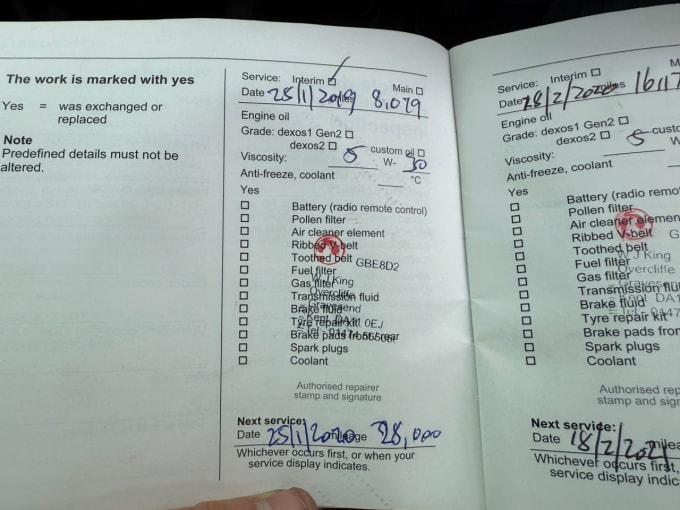 The work is marked with yes
Yes = was exchanged or
replaced
Note
Predefined details must not be
altered.
Service: Interim Main
Date 25/1/2019 miles 8,079
Engine oil
Grade: dexos1 Gen2
dexos2 custom oil
Viscosity: 5 W- 30
Anti-freeze, coolant °C
Yes
Battery (radio remote control)
Pollen filter
Air cleaner element
Ribbed V-belt
Toothed belt
Fuel filter
Gas filter
Transmission fluid
Brake fluid
Tyre repair kit
Brake pads front/rear
Spark plugs
Coolant
GBE8D2
W J King
Overcliffe
Gravesend
Kent DA11 0EJ
Authorised repairer
stamp and signature
Next service:
Date 25/1/2020 mileage 28,000
Whichever occurs first, or when your
service display indicates.
Service: Interim M
Date 28/2/2020 miles 1611
Engine oil
Grade: dexos1 Gen2
dexos2 custo
Viscosity: 5 W
Anti-freeze, coolant
Yes
Battery (radio remo
Pollen filter
Air cleaner elemen
Ribbed V-belt
Toothed belt
Fuel filter
Gas filter
Transmission flu
Brake fluid
Tyre repair kit
Brake pads fron
Spark plugs
Coolant
G
W J King
Overcliffe
Gravese
Kent DA1
Authorised rep
stamp and sign
Next service:
Date 18/2/2021 milea
Whichever occurs first,
service display indica